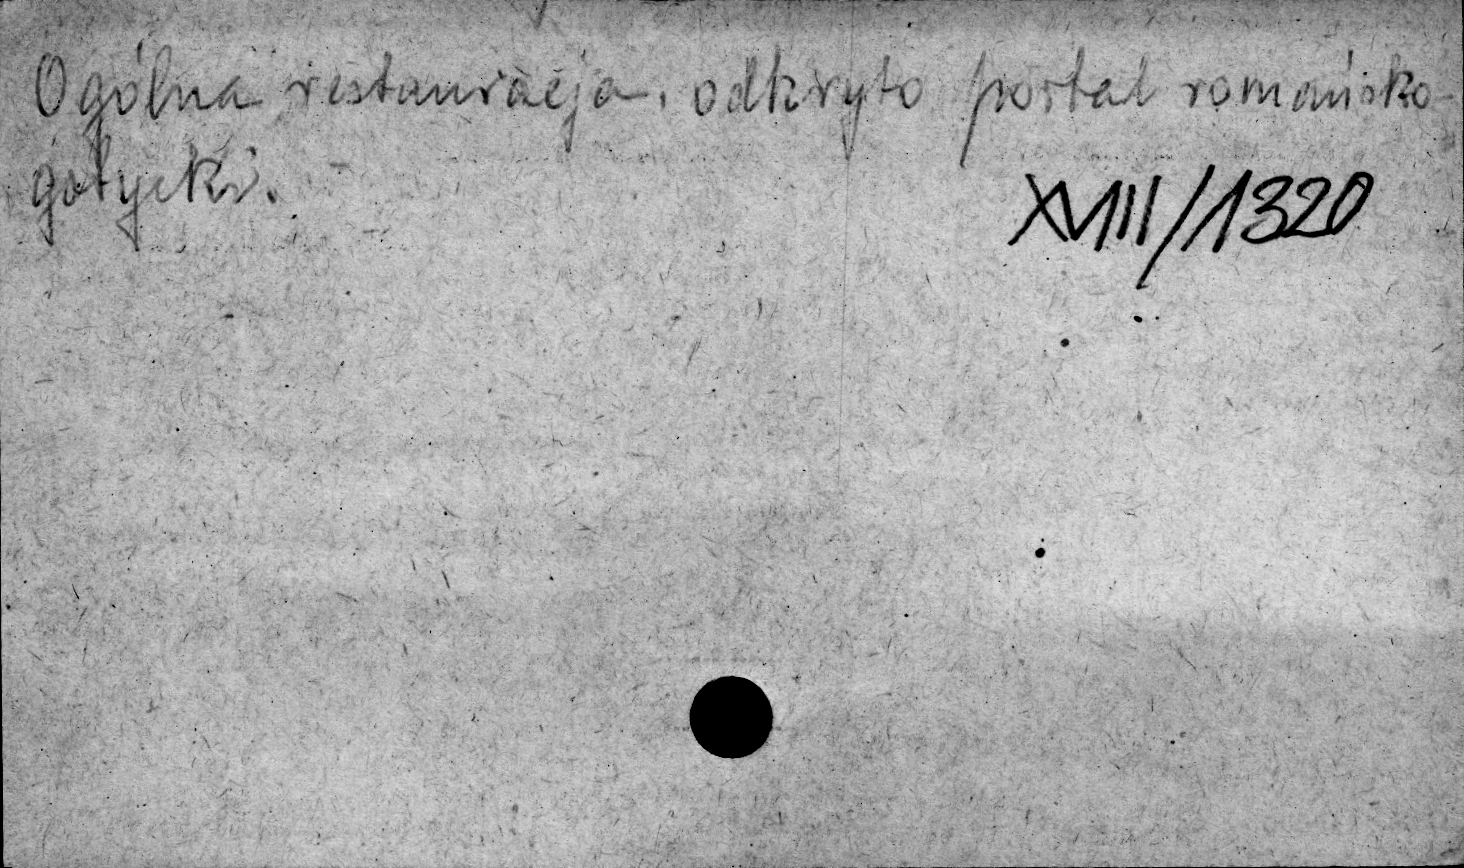 Ogólna restauracja. odkryto portal romańsko-
gotycki.
XVIII/1320